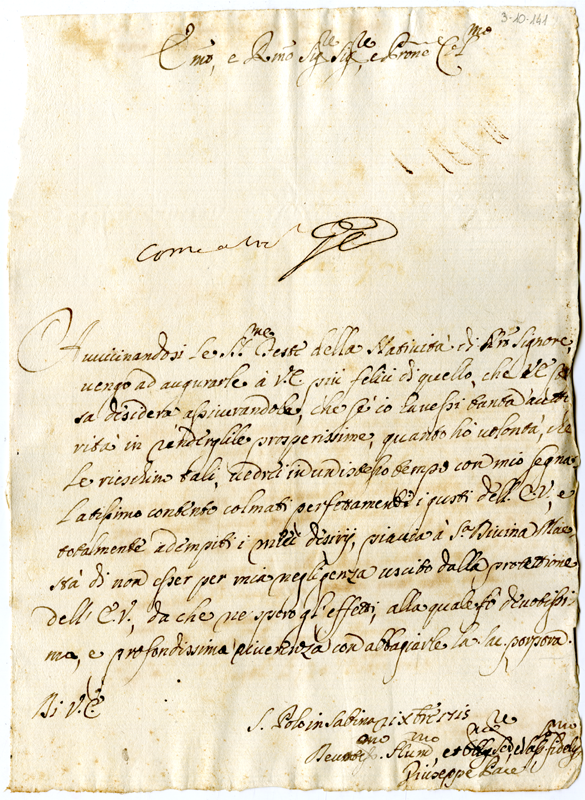 3-10-141
Emo, e Rmo Sigre Sigre, e Prone Colmo
Avvicinandosi le SSme Feste della Natività di Nro Signore,
vengo ad augurarle à V.E. più felici di quello, che l'E. Sa
sà desidera assicurandola, che se io havessi tanta autto
rità in rendergliele prosperissime, quanto hò volontà, che
le rieschino tali, vedrei in un istesso tempo con mio segna
latissimo contento colmati perfettamente i gusti dell' E.V., e
totalmente adempiti i miei desirij, piaccia à Sa Divina Mae
stà di non esser per mia negligenza uscito dalla protettione
dell' E.V., da che ne spero gl'effetti, alla quale fò devotissi
ma, e profondissima riverenza con abbagiarle la porpora.
Di V.E.
S. Polo in Sabina xbre 1715
Devotmo Humo et Obligmo
Giuseppe Pace